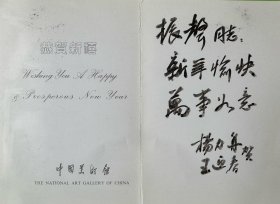 恭賀新禧
Wishing You A Happy
& Prosperous New Year
中国美术馆
THE NATIONAL ART GALLERY OF CHINA
振聲同志:
新年愉快
萬事如意
楊力舟 賀
王迎春